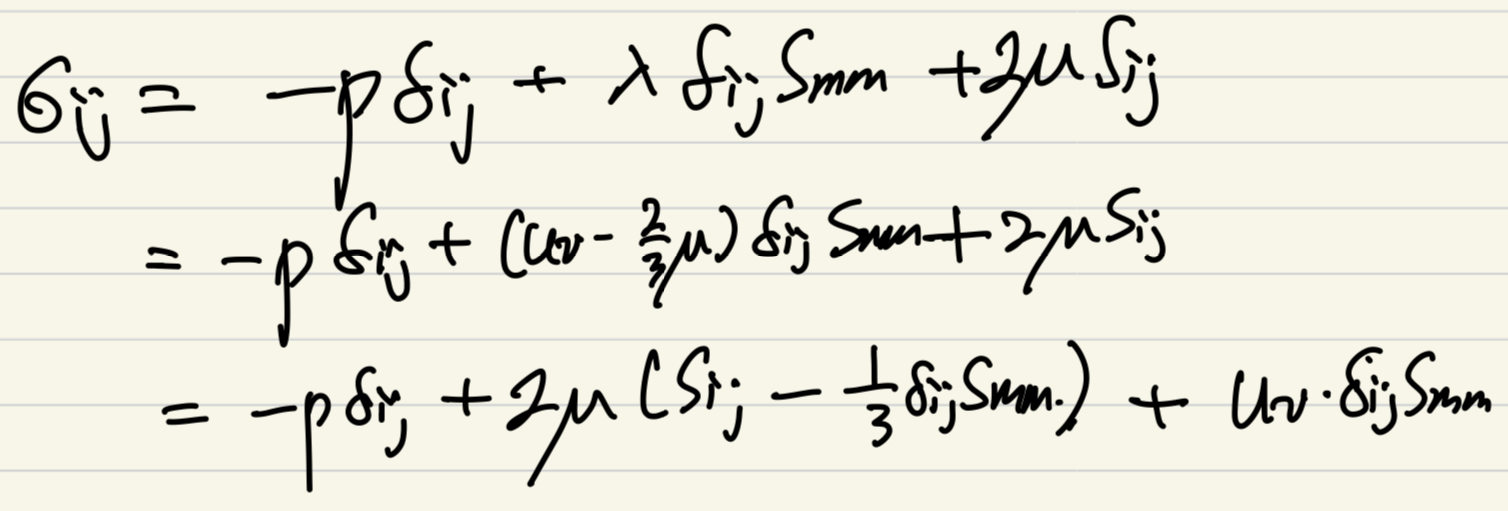 σij = -p δij + λ δij Smm + 2μ Sij
= -p δij + (μv - 2/3 μ) δij Smm + 2μ Sij
= -p δij + 2μ (Sij - 1/3 δij Smm.) + μv · δij Smm